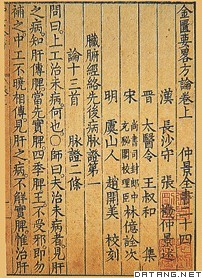 金匱要略方論卷上 仲景全書二十四
漢 長沙守 張機仲景述
晉 太醫令 王叔和 集
宋 尚書司封郎中充秘閣校理臣 林億詮次
明 虞山人 趙開美 校刻
臟腑經絡先後病脉證第一
論十三首 脉證二條
問曰上工治未病何也○師曰夫治未病者見肝
之病知肝傳脾當先實脾四季脾王不受邪即勿
補之中工不曉相傳見肝之病不解實脾惟治肝
DATANG.NET